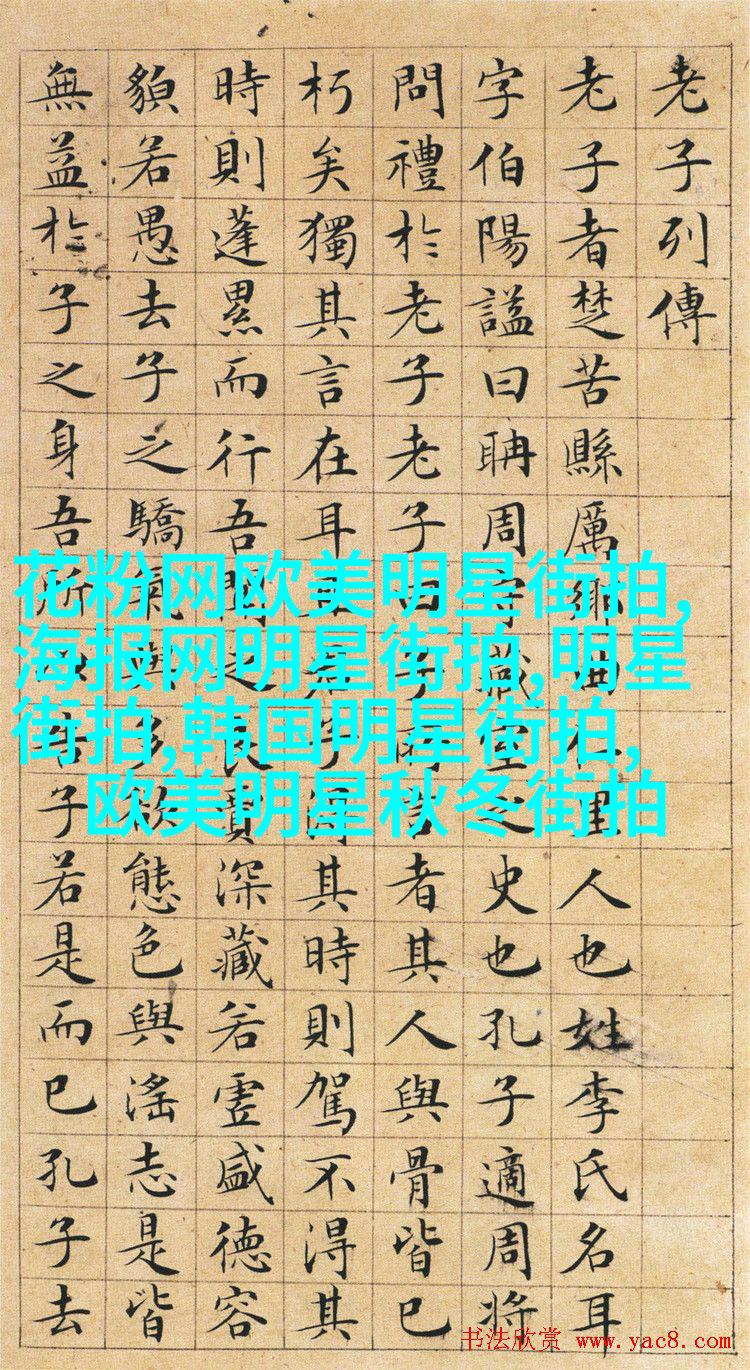 老子列傳
老子者楚苦縣厲鄉曲仁里人也姓李氏名耳
字伯陽謚曰聃周守藏室之史也孔子適周將
問禮於老子老子曰子所言者其人與骨皆已
朽矣獨其言在耳且君子得其時則駕不得其
時則蓬累而行吾聞之良賈深藏若虛盛德容
貌若愚去子之驕氣與多欲態色與淫志是皆
無益於子之身吾所以告子若是而已孔子去
花粉网欧美明星街拍,
海报网明星街拍,明星
街拍,韩国明星街拍,
欧美明星秋冬街拍
书法欣赏 www.yac8.com